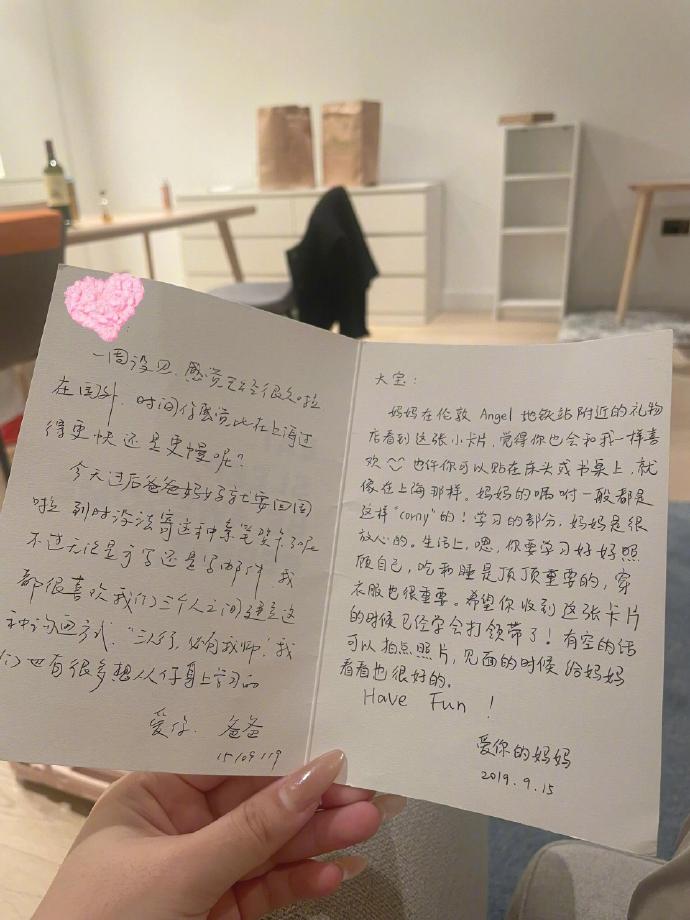 一周没见,感觉已经很久啦
在国外,时间你感觉比在上海过
得更快还是更慢呢?
今天过后爸爸妈妈就要回国
啦 到时没法寄这种亲笔贺卡了呢
不过无论是手写还是写邮件 我
都很喜欢我们三个人之间建立这
种沟通方式."三人行,必有我师",我
们也有很多想从你身上学习的
爱你. 爸爸
15/09/19
大宝:
妈妈在伦敦 Angel 地铁站附近的礼物
店看到这张小卡片,觉得你也会和我一样喜
欢 也许你可以贴在床头或书桌上,就
像在上海那样。妈妈的嘱咐一般都是
这样"corny"的!学习的部分,妈妈是很
放心的。生活上,嗯,你要学习好好照
顾自己,吃和睡是顶顶重要的,穿
衣服也很重要。希望你收到这张卡片
的时候已经学会打领带了!有空的话
可以拍点照片,见面的时候给妈妈
看看也很好的。
Have Fun !
爱你的妈妈
2019.9.15